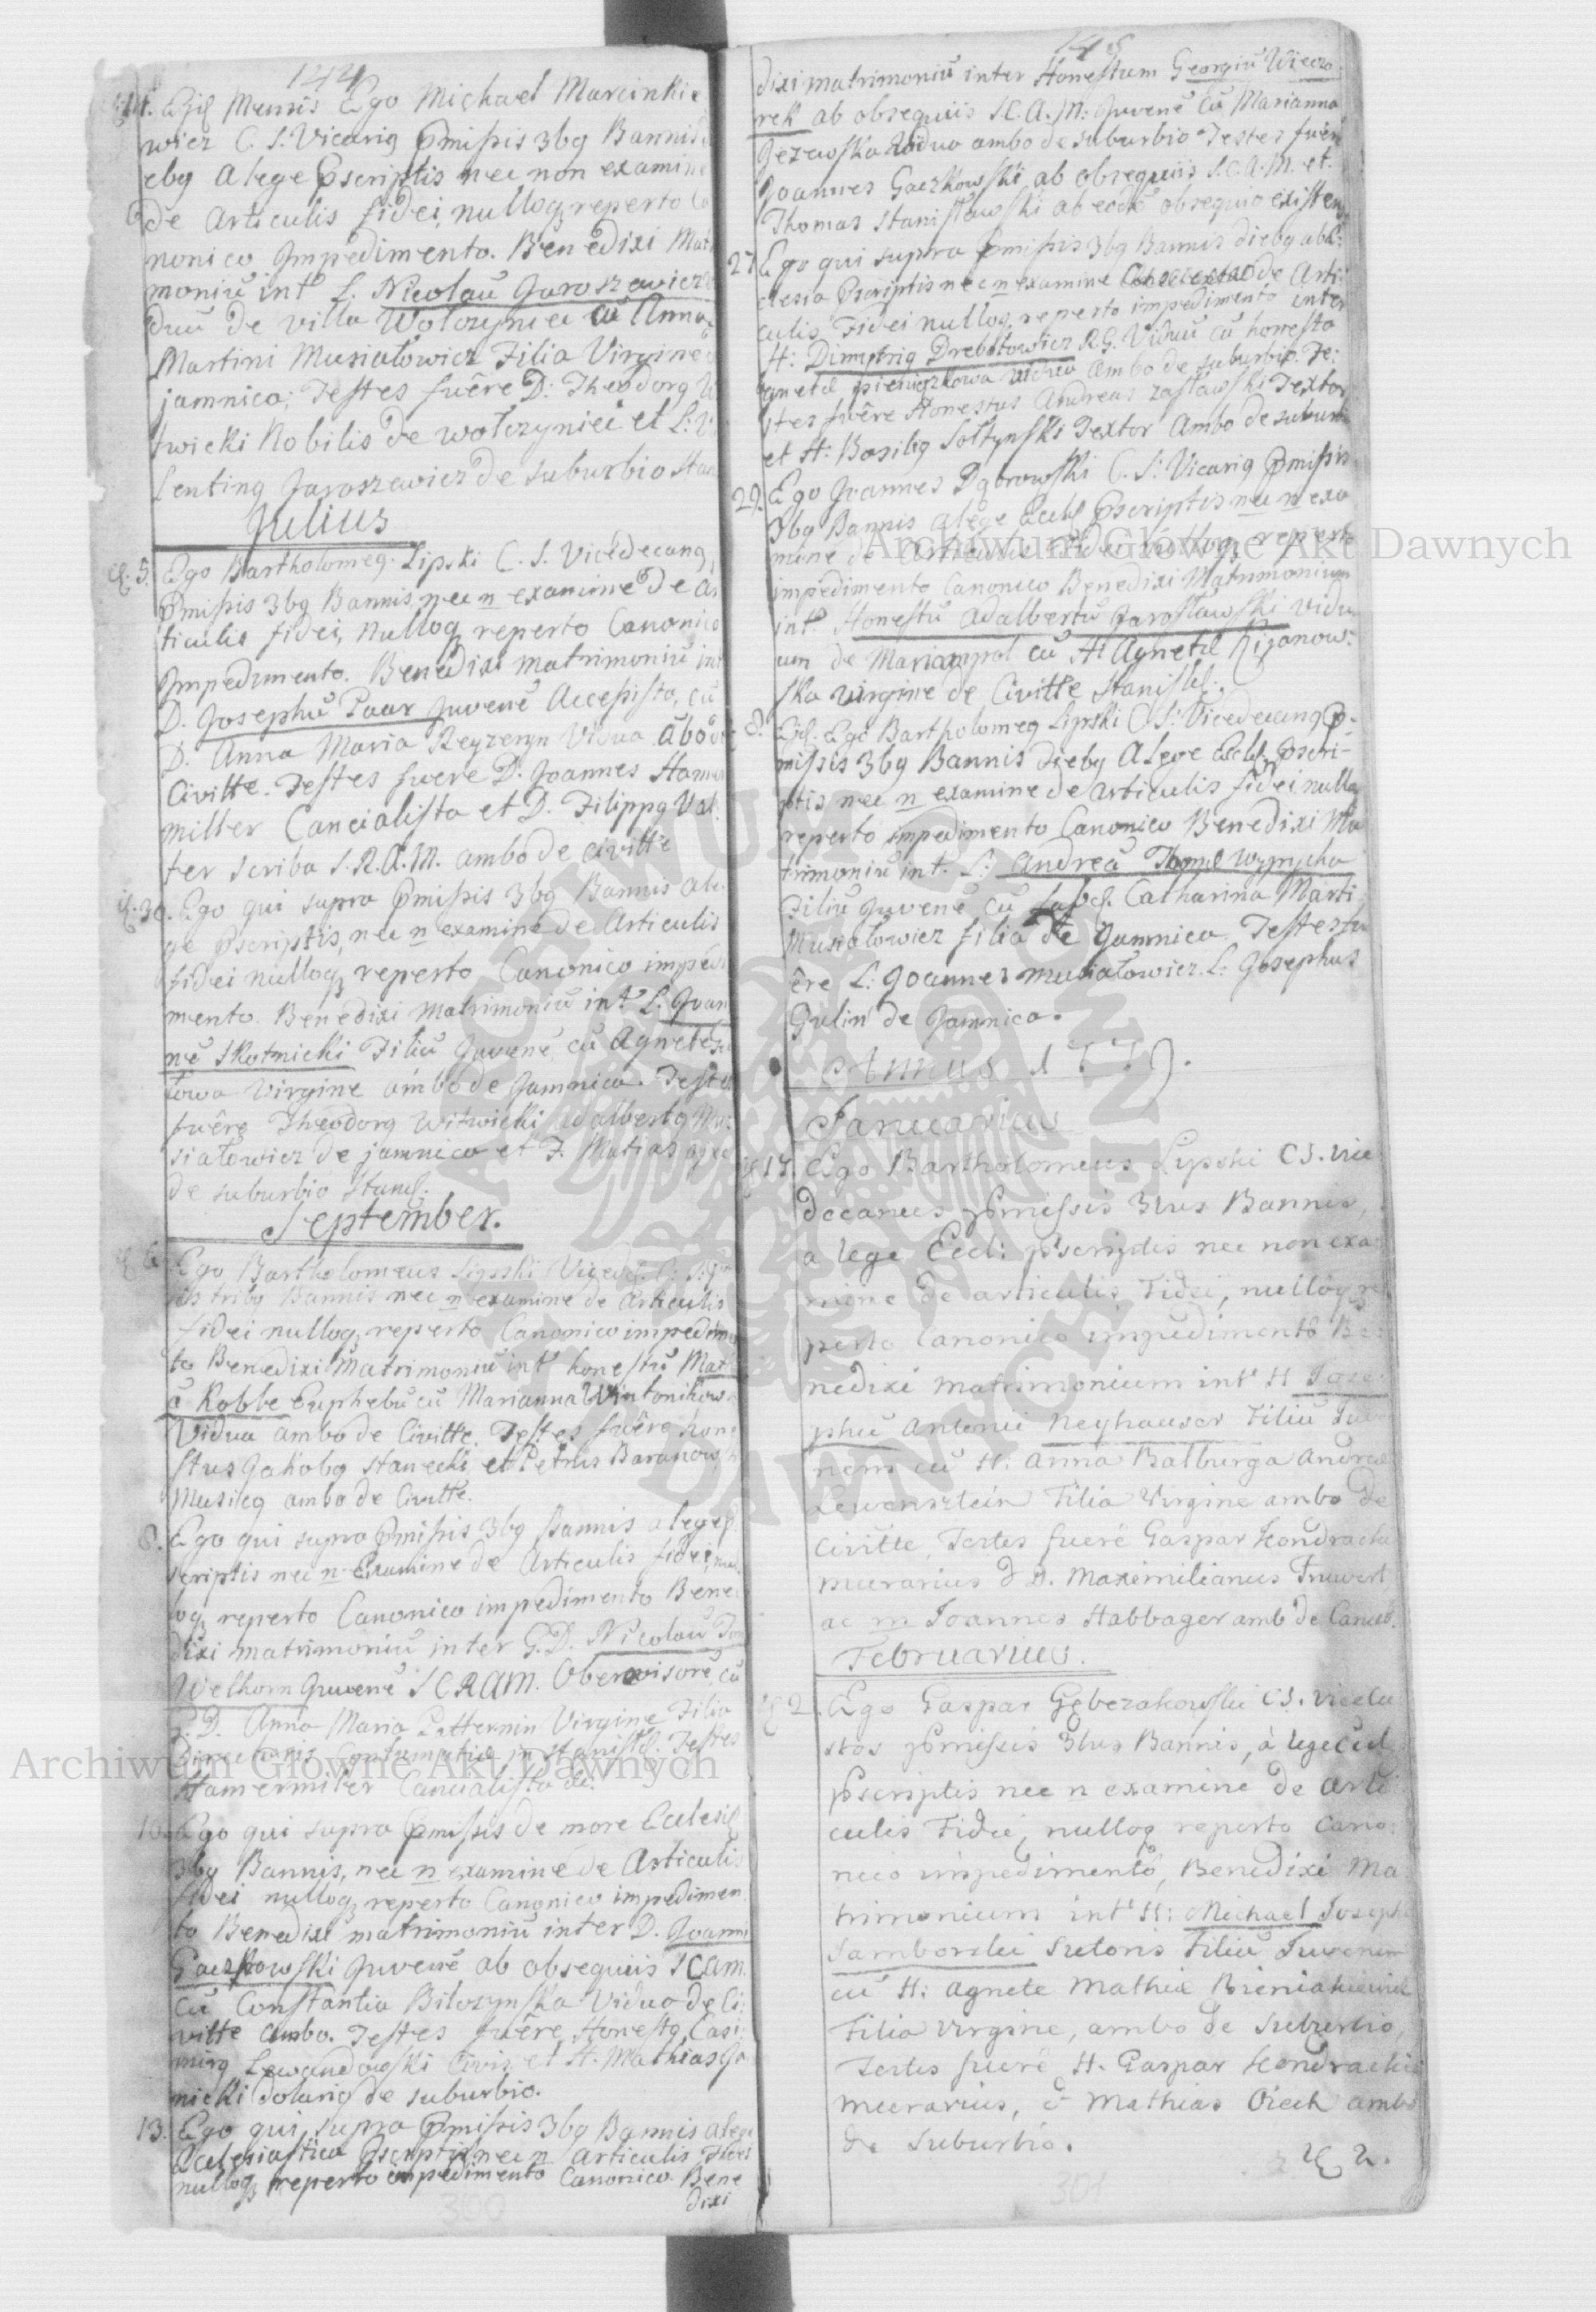 144
14. Ejd Mensis Ego Michael Marcinkie
wicz C. S. Vicarig Pmissis 3bg Bannis
ebg a lege Pscriptis nec non examine
de Articulis fidei, nulloq reperto Ca
nonico Jmpedimento. Benedixi Matri
moniū int L. Nicolaū Jaroszewicz
duū de villa Wołczyniec cū Anna
Martini Musiałowicz Filia Virgine
jamnica; Testes fuêre D: Theodorg W
twicki Nobilis de wołczyniec et L: Va
lenting Jaroszewicz de suburbio Stan
Julius
5. Ego Bartholomeg Lipski C. S. Vicedecang
Pmissis 3bg Bannis nec n examine de Ar
ticulis fidei, Nulloq reperto Canonico
Jmpedimento. Benedixi matrimoniū int
D. Josephū Paur Juvenē Accessista, cū
D. Anna Maria Reyzeryn Vidua Abo de
Civitte. Testes fuere D. Joannes Hamer
miller Cancialista et D. Filippg Val
ter scriba S.R.A.M. ambo de civitte
30. Ego qui supra Pmissis 3bg Bannis a le
ge Pscriptis, nec n examine de Articulis
fidei nulloq reperto Canonico impedi
mento. Benedixi matrimoniū int L. Joan
nē Skutnicki Filiū Juvenē, cū Agnete
towa Virgine ambo de Jamnica. Testes
fuêre Theodorg Witwicki adalbertg Mu
siałowicz de jamnica et F. Matias
de suburbio Stanis.
September.
6. Ego Bartholomeus Lipski Viced. C: S: P
sis tribg Bannis nec n examine de Articulis
fidei nulloq reperto Canonico impedimen
to Benedixi Matrimoniū int honestū Mat
ū Robbe Euphebū cū Marianna Wintonikowa
Vidua ambo de Civitte. Testes fuêre hone
stus Jakobg Stanecki et Petrus Baranowski
Musicg ambo de Civitte.
8. Ego qui supra Pmissis 3bg Bannis a lege P
scriptis nec n Examine de Articulis fidei, nul
loq reperto Canonico impedimento Bene
dixi matrimoniū inter G.D. Nicolaū
Welhorn Juvenē SCRAM. Oberavisore, cū
G. D. Anna Maria Patternin Virgine Filia
Directoris in Stanisl. Testes
Hamermiler Cancialista
10. Ego qui supra Pmissis de more Ecclesie
3bg Bannis, nec n examine de Articulis
fidei nulloq reperto Canonico impedimen
to Benedixi matrimoniū inter D. Joanni
Gaczkowski Juvenē ab obsequiis SCAM.
cū Constantia Bilozynska Vidua de Ci
vitte ambo. Testes fuêre Honestg Casi
mirg Lewandowski Civis et H. Mathias Ja
nicki dolarig de suburbio.
13. Ego qui supra Pmissis 3bg Bannis a lege
Ecclesiastica Pscriptis nec n Articulis Fidei
nulloq reperto impedimento Canonico Bene
dixi
300
145
dixi matrimoniū inter Honestum Georgiū Wieczo
rek ab obsequiis S.C.A.M: Juvenē Cū Marianna
Jezewska Vidua ambo de suburbio Testes fuêre
Joannes Gaczkowski ab obsequiis S.C.A.M. et
Thomas Stanisławski ab eodē obsequio existens
27. Ego qui supra Pmissis 3bg Bannis diebg ab Ec
clesia Pscriptis nec n examine de Arti
culis Fidei nulloq reperto impedimento inter
H: Dimytrig Drebotowicz R.G. Viduū cū honesta
Agnete Pieniązkowa vidua Ambo de suburbio. Te
stes fuêre Honestus Andreas Zasławski Textor
et H: Basilig Sołtynski Textor Ambo de suburbi
29. Ego Joannes Dąbrowski C. S: Vicarig Pmissis
3bg Bannis a lege Eccls Pscriptis nec n exa
mine de Articulis Fidei nulloq reperto
impedimento Canonico Benedixi Matrimonium
int Honestū Adalbertū Jarosławski vidu
um de Mariampol cū H Agnete Rizanow
ska virgine de Civitte Stanisl.
8. Ejd. Ego Bartholomeg Lipski C S: Vicedecang P
missis 3bg Bannis diebg a lege Eccls. Pscri
ptis nec n examine de articulis fidei nullo
reperto impedimento Canonico Benedixi Ma
trimoniū int. L: Andreā Wyrycha
Filiū Juvenē cū Catharina Marti
Musiałowicz filia de Jamnica Testes fu
êre L: Joannes Musiałowicz L: Josephus
Gulin de Jamnica.
Annus 1779.
Januarius
17. Ego Bartholomeus Lipski CS. Vice
decanus pmissis 3bus Bannis,
a lege Eccl: Pscriptis nec non exa
mine de articulis Fidei, nulloq re
perto Canonico impedimento Be
nedixi matrimonium int H Jose
phū Antonii Neyhauser Filiū Juve
nem cū H: Anna Balburga Andreæ
Lewensztein Filia Virgine ambo de
civitte, Testes fuerē Gaspar Kondracki
murarius & D. Maximilianus Truwert
ac m Joannes Habbager amb de Canceb.
Februarius.
2. Ego Gaspar Gębczakowski CS. Vicecu
stos pmissis 3bus Bannis, à lege Ecl
pscriptis nec n examine de arti
culis Fidei, nulloq reperto Cano
nico impedimento, Benedixi Ma
trimonium int H: Michael Josephi
Samborski Sutoris Filiū Juvenem
cū H: Agnete Mathiæ Bieniakiewicz
Filia Virgine, ambo de Suburbio,
Testes fuerē H. Gaspar Kondracki
murarius, & Mathias Oiech ambo
de Suburbio.
301
Archiwum Główne Akt Dawnych
Archiwum Główne Akt Dawnych
ARCHIWUM GŁÓWNE AKT DAWNYCH